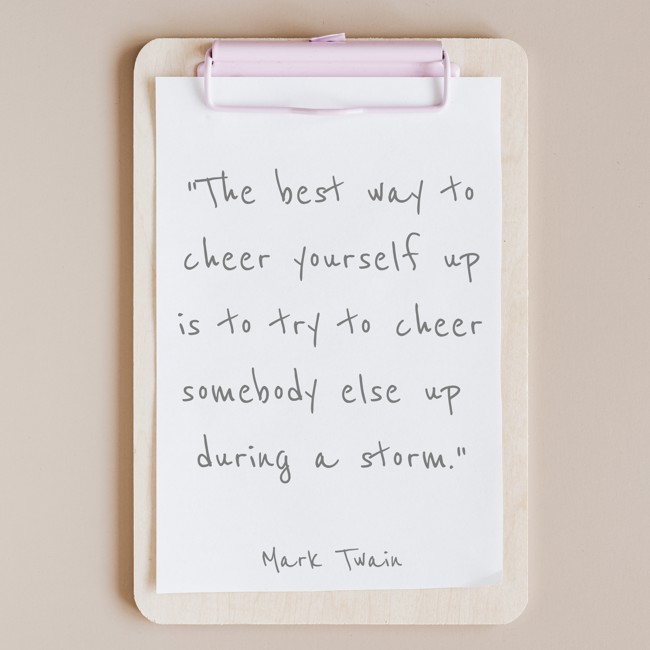 "The best way to
cheer yourself up
is to try to cheer
somebody else up
during a storm."
Mark Twain